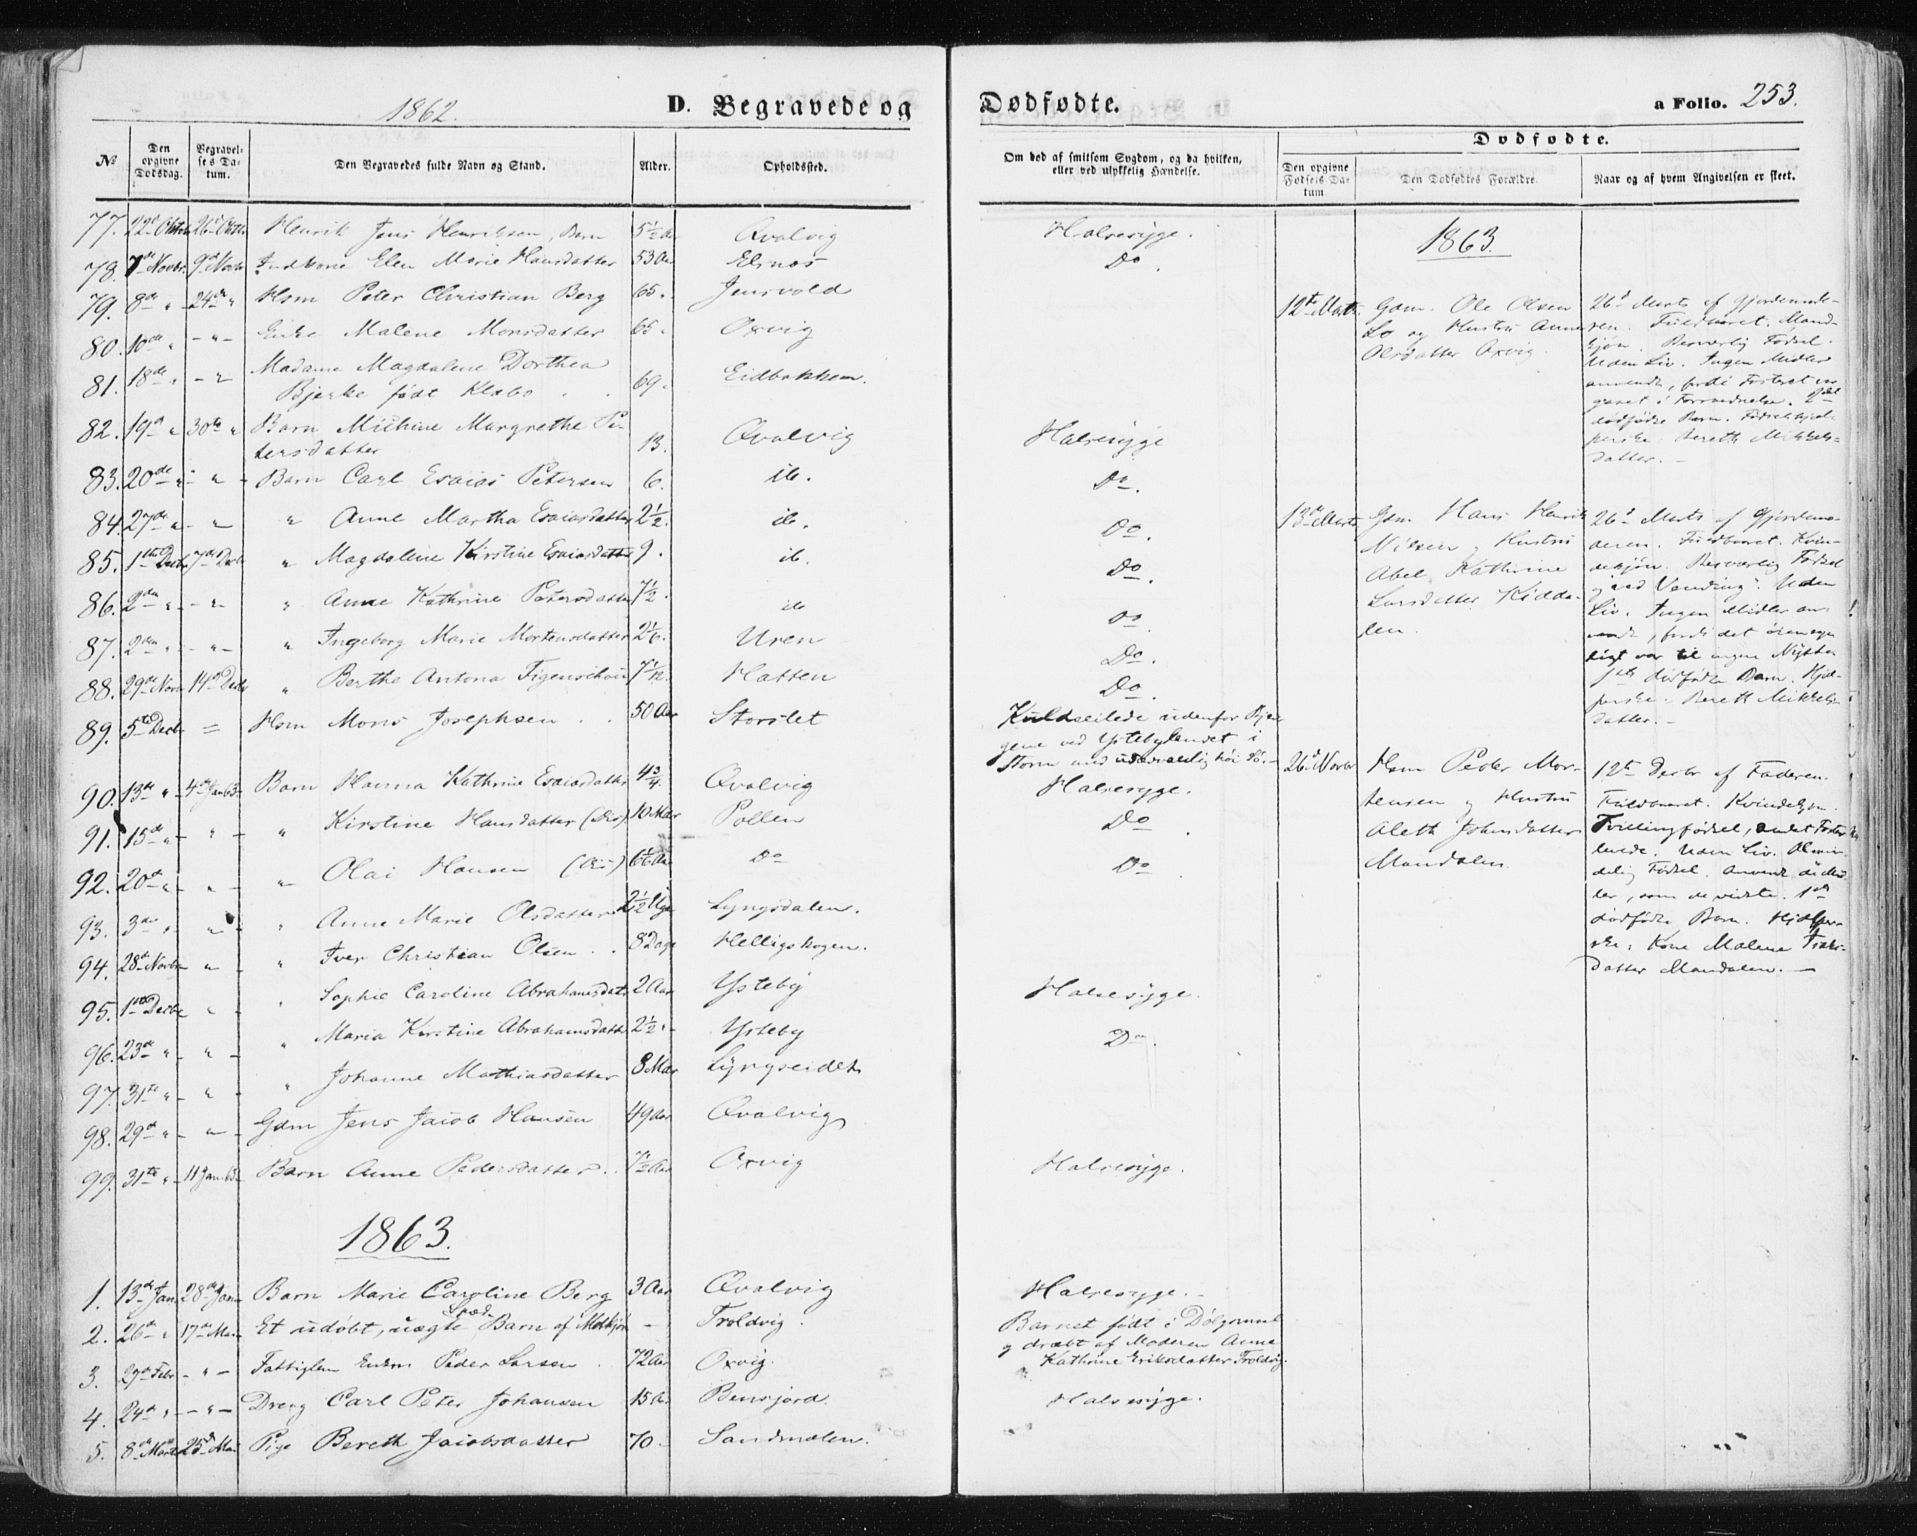 1862.
D. Begravede og
Dødfødte.
a Folio. 253.
№
Den opgivne Dødsdag.
Begravelses Datum.
Den Begravedes fulde Navn og Stand.
Alder.
Opholdssted.
Om død af smitsom Sygdom, og da hvilken,
eller ved ulykkelig Hændelse.
Dødfødte.
Den opgivne Fødsels Datum
Den Dødfødtes Forældre.
Naar og af hvem Angivelsen er skeet.
77. 22d Octbr 26d Octbr Henrik Jens Henriksen, Barn 5½ Aar Qvalvig Halsesyge.
78. 7de Novbr. 9de Novbr Indkone Elen Marie Hansdatter 53 Aar Elsnæs Do.
79. 8de " 24de " Hsm Peter Christian Berg 65. Jensvold
80. 10de " - " - Enke Malene Monsdatter 65. Oxvig
81. 18de " - " Madame Magdalene Dorthea
Bjerke født Klæbo . . 69. Eidbakken.
82. 19de " 30te " Barn Michine Margrethe Pe-
tersdatter 13. Qvalvig Halsesyge
83. 20de " - " - Barn Carl Esaias Petersen 6. ib. Do.
84. 27de " - " " Anne Martha Esaiasdatter 2½. ib. Do.
85. 1ste Decbr 7de Decbr " Magdalene Kirstine Esaiasdatter 9. ib. Do.
86. 2den " - " - " Anne Kathrine Petersdatter 7½. ib Do.
87. 2den " - " - " Ingeborg Marie Mortensdatter 2 1/6. Uren Do.
88. 29de Novbr 14de Decbr " Berthe Antona Figenschou 7 1/12. Hatten Do.
89. 5te Decbr = Hsm Mons Josephsen . . 50 Aar Storslet Kuldseilede udenfor
gene ved Ystebylandet i
Storm med høi Sø.
90. 13de " 4de Jan 63 Barn Hanna Kathrine Esaiasdatter 4¾. Qvalvig Halsesyge.
91. 15de " - " - " Kirstine Hansdatter 10 Mdr Pollen Do.
92. 20de " " - " Olai Hansen 6 1/6 Aar Do Do
93. 3de " " - " Anne Marie Olsdatter 2½ Uge Lyngsdalen.
94. 28de Novbr " - " Iver Christian Olsen . . 8 Dage Helligskogen.
95. 1ste Decbr " - " Sophie Caroline Abrahamsdatr 2 Aar Ysteby Halsesyge.
96. 23de " - " - " Maria Kirstine Abrahamsdattr 2½ " Ysteby Do.
97. 31te " - " - " Johanne Mathiasdatter 8 Mdr Lyngseidet
98. 29de " - " - Gdm Jens Jacob Hansen 49 Aar Qvalvig
99. 31te " 11 Jan 63 Barn Anne Pedersdatter . 7½ Aar Oxvig Halsesyge.
1863.
1. 13de Jan 28de Jan Barn Marie Caroline Berg 3 Aar Qvalvig Halsesyge.
2. 26de " 17de Mar Et udøbt, uægte Spæd Barn af Mdkjøn - Troldvig. Barnet født i Dølgsmaal
og dræbt af Moderen Anne
Kathrine Eriksdatter Troldvig.
3. 29de Febr - " - Fattiglem Peder Larsen . 72 Aar Oxvig.
4. 24de " - " - Dreng Carl Peter Johansen 15 Aar Bensjord Halsesyge.
5. 8de Marts 25de Mar Pige Bereth Jacobsdatter 70. Sandmælen.
1863.
12te Marts.
Gdm. Ole Olsen
Lo og Hustru Anne
Olsdatter Oxvig.
26d Marts af Gjordemode-
ren. Fuldbaaret. Mand-
kjøn. Besværlig Fødsel.
Uden Liv. Ingen Midler
anvendt, fordi Fosteret var
gaaet i Forraadnelse. 2det
dødfødte Barn. Fødselshjel-
perske: Bereth Mikkels-
datter.
13de Marts
Gdm. Hans Henrik
Nilsen og Hustru
Abel Kathrine
Larsdatter Kidda-
len.
26d Marts af Gjordemo-
deren. Fuldbaaret. Kvin-
dekjøn. Besværlig Fødsel
ved Vending. Uden
Liv. Ingen Midler an-
vendt, fordi det øiensyn-
ligt var til ingen Nytte.
1ste dødfødte Barn. Hjel-
perske: Berett Mikkels-
datter.
26d Novbr
Hsm Peder Mor-
tensen og Hustru
Aleth Johnsdatter
Mandalen.
12te Decbr af Faderen.
Fuldbaaret. Kvindekjøn.
Tvillingfødsel, andet Foster
levede. Uden Liv. Almin-
delig Fødsel. Anvendt de Mid-
ler, som de vidste. 1ste
dødfødte Barn. Hjelper-
ske: Kone Malene Isaks-
datter Mandalen.